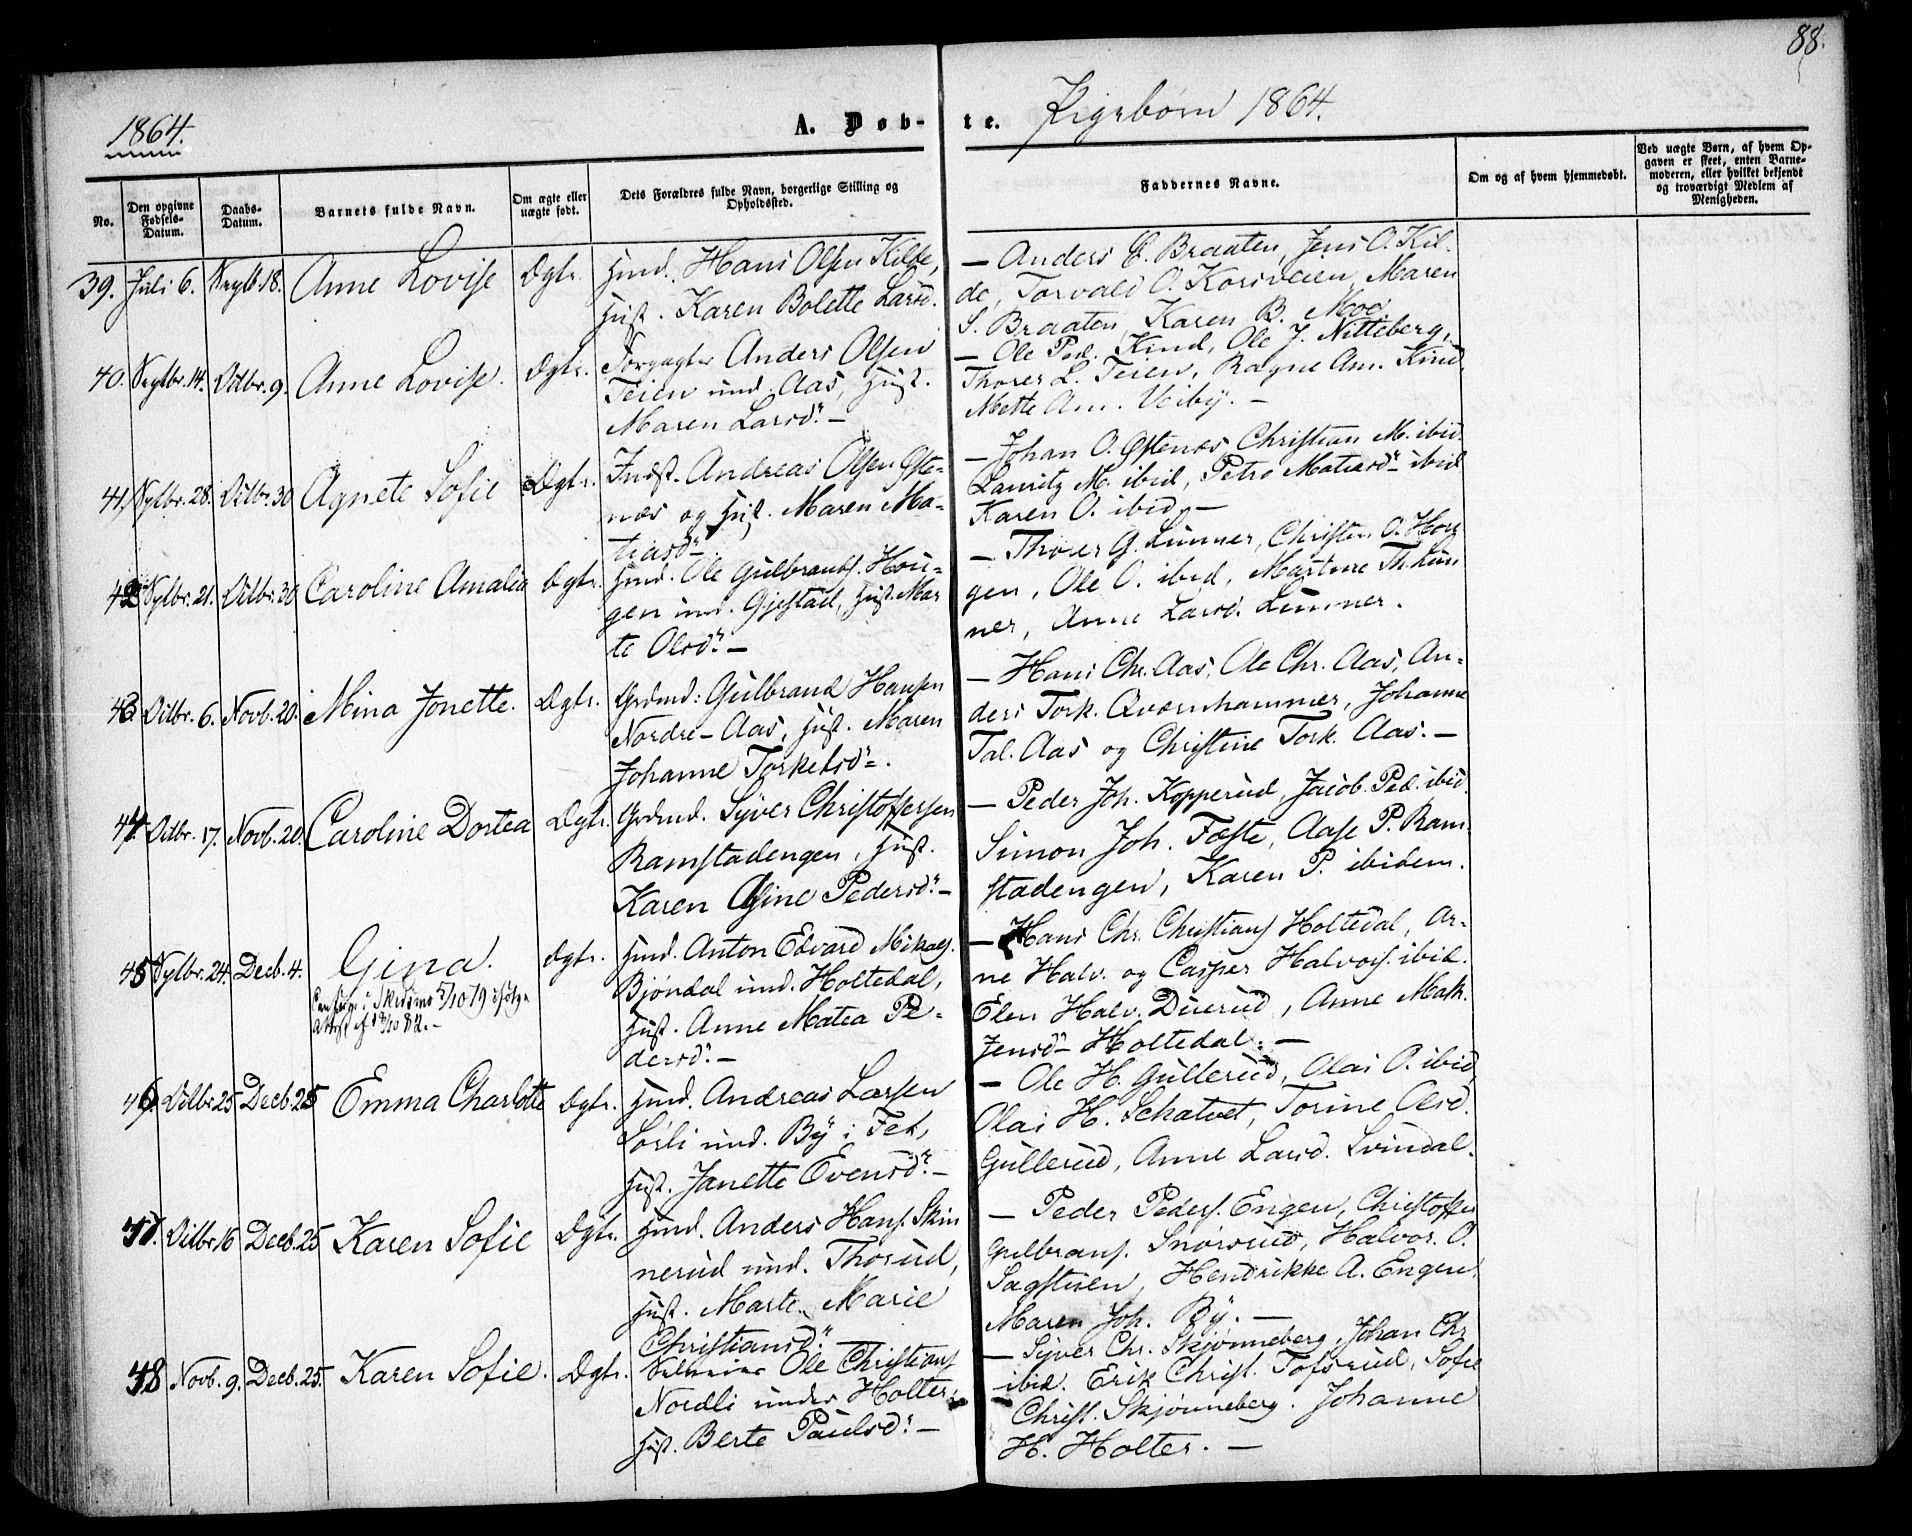 88.
1864.
A. Døb-te. Pigebørn 1864.
No.
Den opgivne Fødsels-Datum.
Daabs-Datum.
Barnets fulde Navn.
Om ægte eller uægte født.
Dets Forældres fulde Navn, borgerlige Stilling og Opholdssted.
Faddernes Navne.
Om og af hvem hjemmedøbt.
Ved uægte Børn, af hvem Opgaven er skeet, enten Barnemoderen, eller hvilket bekjendt og troværdigt Medlem af Menigheden.
39. Juli 6. Septb. 18. Anne Lovise Dgtr.
Huusmd. Hans Olsen Kilde,
Hust. Karen Bolette Larsd.
— Anders E. Braaten, Jens O. Kil-
de, Torvald O. Korsveien, Maren
S. Braaten, Karen B. Moe.
40. Septbr. 14. Octbr. 9. Anne Lovise. Dgtr.
Forpagter Anders Olsen
Teien und. Aas, Hust.
Maren Larsdr. —
— Ole Ped. Kind, Ole J. Nitteberg,
Thorer L. Teien, Ragne Am. Kind,
Mette Am. Veiby. —
41. Septbr. 28. Octbr. 30 Agnete Sofie Dgtr.
Indst. Andreas Olsen Øste-
næs og Hust. Maren Ma-
tiasdr.
— Johan O. Østenæs, Christian M. ibid.
Lauritz M. ibid, Petro Matiasdr. ibid
Karen O. ibid. —
42 Septbr. 21. Octbr. 30 Caroline Amalia Dgtr.
Hmd. Ole Gulbrands. Hou-
gen und. Gjestad, Hust. Mar
te Olsdr. —
— Thorer G. Linner, Christen O. Hou
gen, Ole O. ibid, Martine Th. Lin
ner, Anne Larsd. Linner.
43 Octbr. 6. Novb. 20. Mina Jonette. Dgtr.
Grdmd: Gulbrand Hansen
Nordre-Aas, Hust. Maren
Johanne Torkelsdr.
— Hans Chr. Aas, Ole Chr. Aas, An-
ders Tork. Qværnhammer, Johanne
Tal. Aas og Christine Tork. Aas. —
44 Octbr. 17. Novb. 20. Caroline Dortea Dgtr.
Grdmd. Syver Christoffersen
Ramstadengen, Hust.
Karen Gine Pedersdr. —
— Peder Joh. Kopperud, Jacob Ped. ibid.
Simon Joh. Fæste, Aase P. Ram-
stadengen, Karen P. ibidem.
45 Septbr. 24. Decb. 4. Gina. Dgtr.
i Skedsmo 5/10 79 ifølge
Attest af 18/10 82. —
Hmd. Anton Edvard Mikaels.
Bjøndal und. Holtedal,
Hust. Anne Matea Pe-
dersdr. —
— Hans Chr. Christians. Holtedal, Ar-
ne Halv. og Casper Halvors. ibid.
Elen Halv. Duerud, Anne Math.
Jensdr. Holtedal. —
46 Octbr. 25 Decb. 25 Emma Charlotte Dgtr.
Hmd. Andreas Larsen
Sørli und. By i Fet,
Hust. Janette Evensdr. —
— Ole H. Gullerud, Olai O. ibid,
Olai H. Schatvet, Torine Olsd.
Gullerud, Anne Larsd. Svindal.
47. Octbr. 16 Decb. 25 Karen Sofie Dgtr.
Hmd. Anders Hans. Skin
nerud und. Thorud,
Hust. Marte Marie
Christiansdr.
— Peder Peders. Engen, Christoffer
Gulbrans. Snorsrud, Halvor O.
Sagstuen, Hendrikke A. Engen,
Maren Joh. By. —
48 Novb. 9. Decb. 25. Karen Sofie. Dgtr.
Selveier Ole Christians.
Nordli under Holter,
Hust. Berte Paulsdr. —
— Syver Chr. Skjønneberg, Johan Chr.
ibid. Erik Christ. Tofsrud, Sofie
Christ. Skjønneberg. Johanne
H. Holter. —